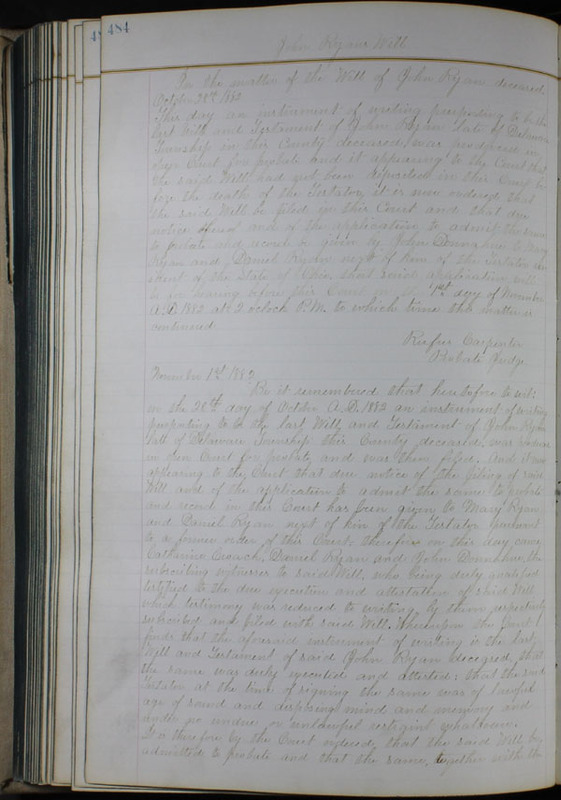 484
John Ryans Will
In the matter of the Will of John Ryan deceased
October 28th 1882
This day an instrument of writing purporting to be the
last Will and Testament of John Ryan late of Delaware
Township in this County deceased, was produced in
open Court for probate and it appearing to the Court that
the said Will had not been
the death of the Testator, it is now ordered that
the said Will be filed in this Court and that due
notice and of the application to admit the same
to probate and record be given to Mary
Ryan and Daniel Ryan next of kin of the Testator
of the State of Ohio, that said application will
be for hearing before this Court on the 1st day of November
A.D. 1882 at 2 oclock P.M. to which time this matter is
continued
Carpenter
Probate Judge
November 1st 1882
Be it remembered that heretofore to wit:
on the 28th day of October A.D. 1882 an instrument of writing
purporting to be the last Will and Testament of John Ryan
late of Delaware Township this County deceased, was produced
in open Court for probate and was then filed. And it now
appearing to the Court that due notice of the filing of said
Will and of the application to admit the same to probate
and record in this Court has been given to Mary Ryan
and Daniel Ryan next of kin of the Testator pursuant
to a former order of this Court, therefore on this day came
Catharine Daniel Ryan and John Donnahue, the
subscribing witnesses to said Will, who being duly qualified
testified to the due execution and attestation of said Will
which testimony was reduced to writing by them respectively
subscribed and filed with said Will. Whereupon the Court
finds that the aforesaid instrument of writing is the last
Will and Testament of said John Ryan deceased, that
the same was duly executed and attested; that the said
Testator at the time of signing the same was of lawful
age of sound and disposing mind and memory and
under no undue or unlawful restraint whatsoever.
It is therefore by the Court ordered, that the said Will be
admitted to probate and that the same, together with the